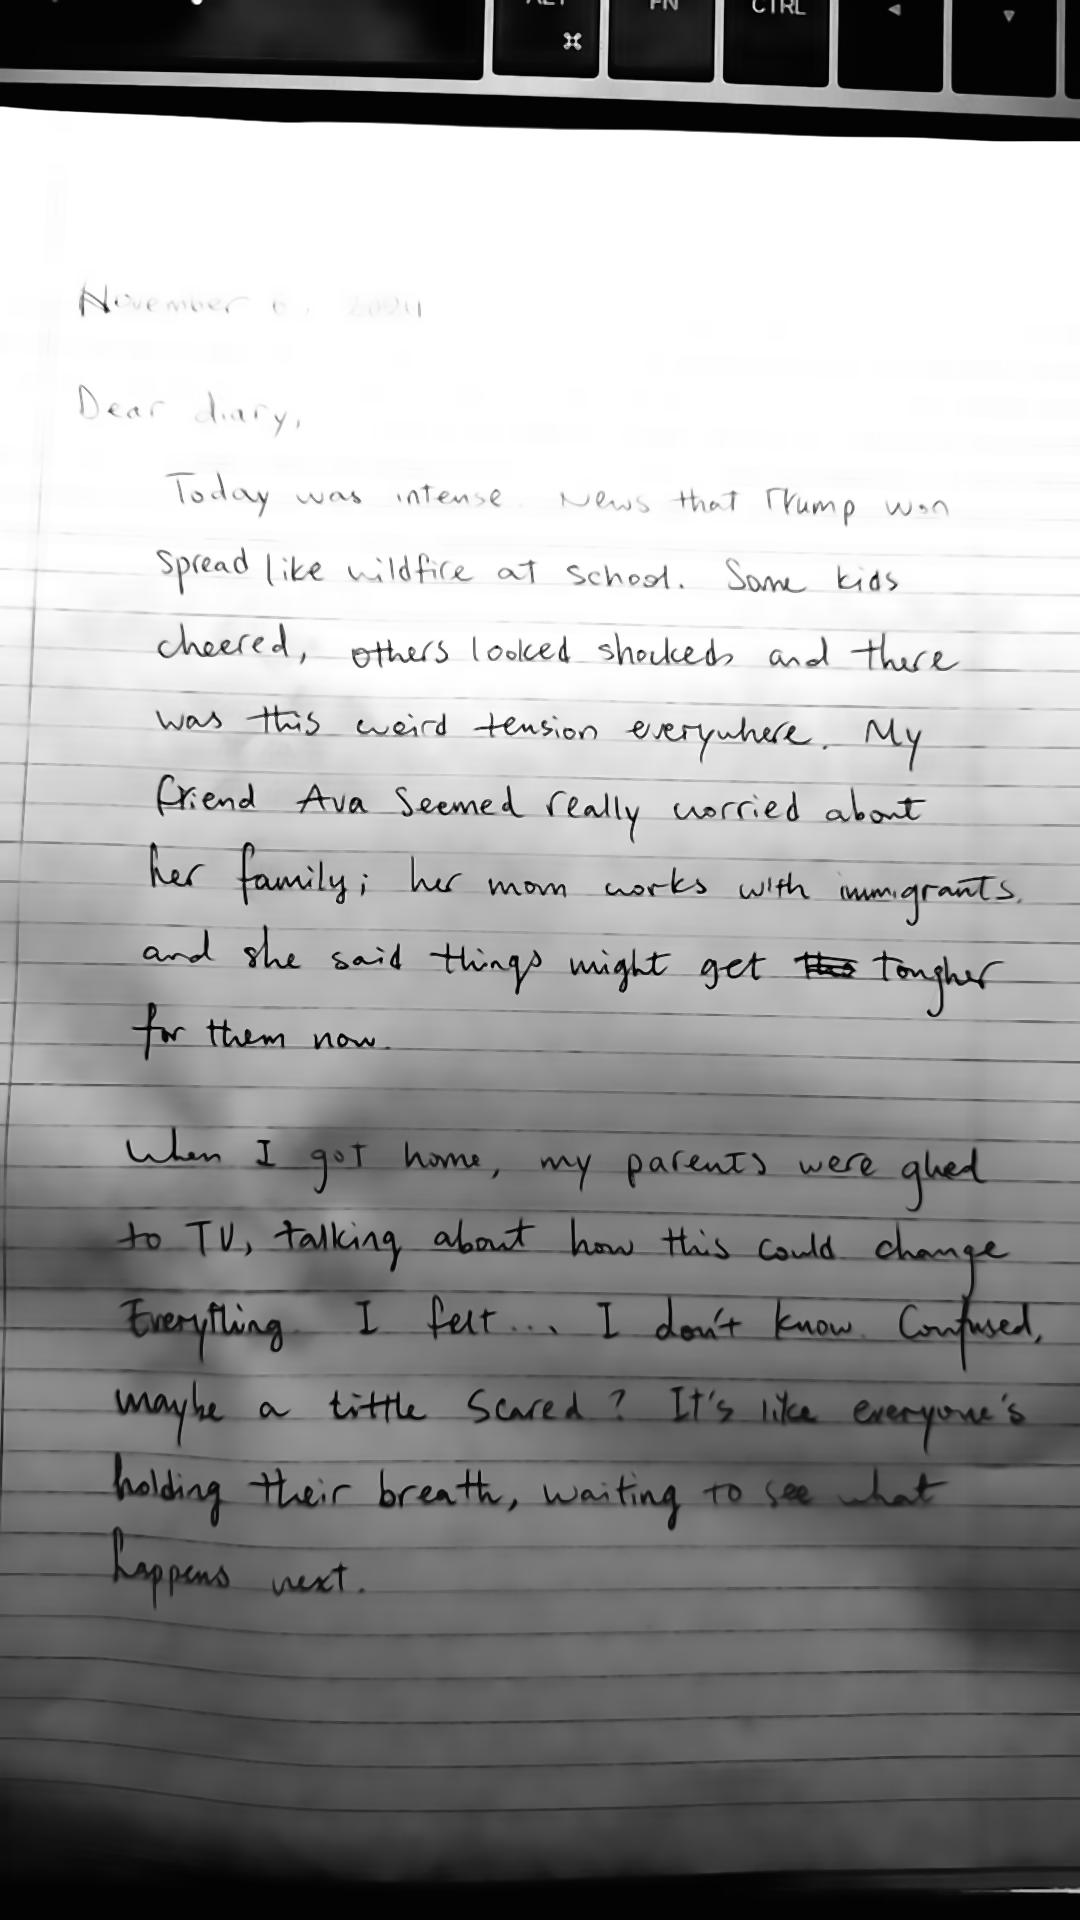 FN
CTRL
November 6, 2024
Dear diary,
Today was intense. News that Trump won
spread like wildfire at school. Some kids
cheered, others looked shocked and there
was this weird tension everywhere. My
friend Ava seemed really worried about
her family; her mom works with immigrants,
and she said things might get tougher
for them now.
When I got home, my parents were glued
to TV, talking about how this could change
Everything. I felt... I don't know. Confused,
maybe a little scared? It's like everyone's
holding their breath, waiting to see what
happens next.